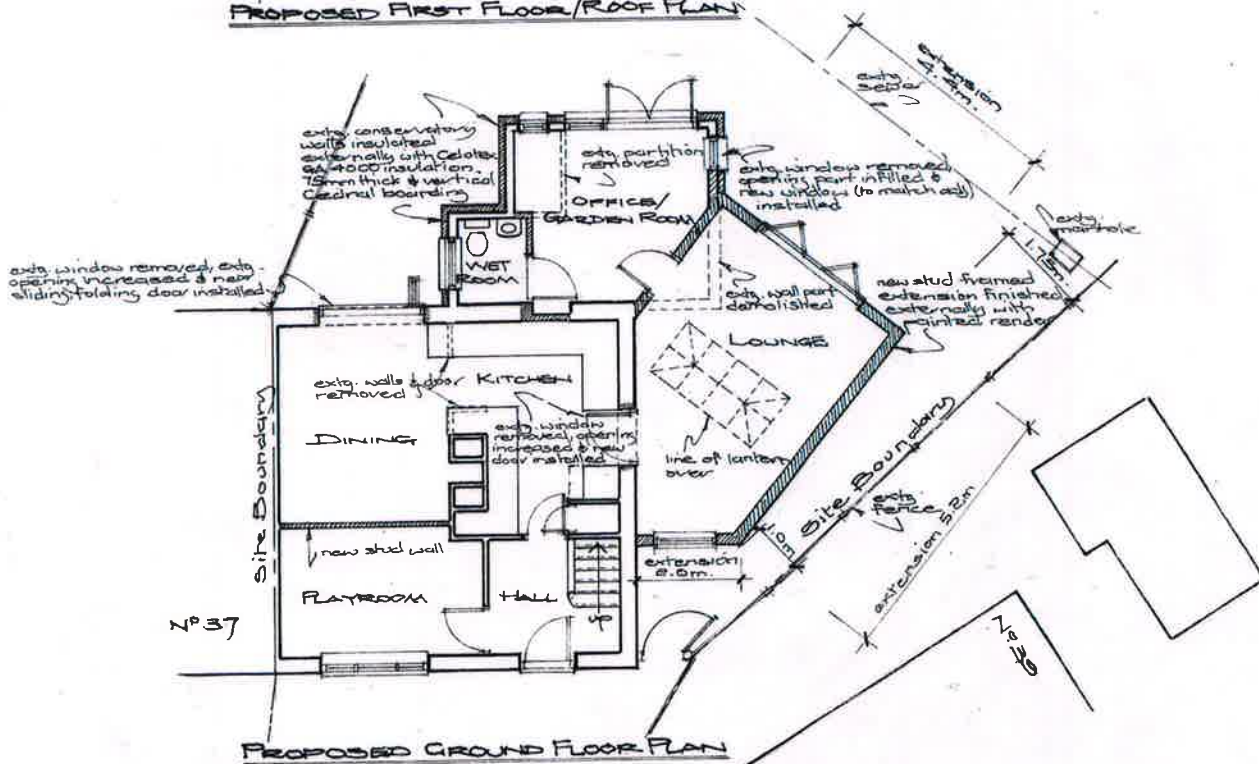 PROPOSED FIRST FLOOR/ROOF PLAN
extension
4.4m.
extg.
sewer
extg. conservatory
walls insulated
externally with Celotex
GA4000 insulation
75mm thick & vertical
Cedral boarding
extg. partition
removed
extg. window removed,
opening part infilled &
new window (to match adj)
installed
OFFICE/
GARDEN ROOM
WET
ROOM
extg.
manhole
1.75m
extg. window removed, extg.
opening increased & new
sliding/folding door installed
extg. wall part
demolished
new stud framed
extension finished
externally with
painted render
LOUNGE
extg. walls & door
removed
KITCHEN
DINING
extg. window
removed, opening
increased & new
door installed
line of lantern
over
Site Boundary
Site Boundary
extg.
fence
extension 5.2m
1.0m
new stud wall
extension
2.0m.
PLAYROOM
HALL
UP
Nº 37
PROPOSED GROUND FLOOR PLAN